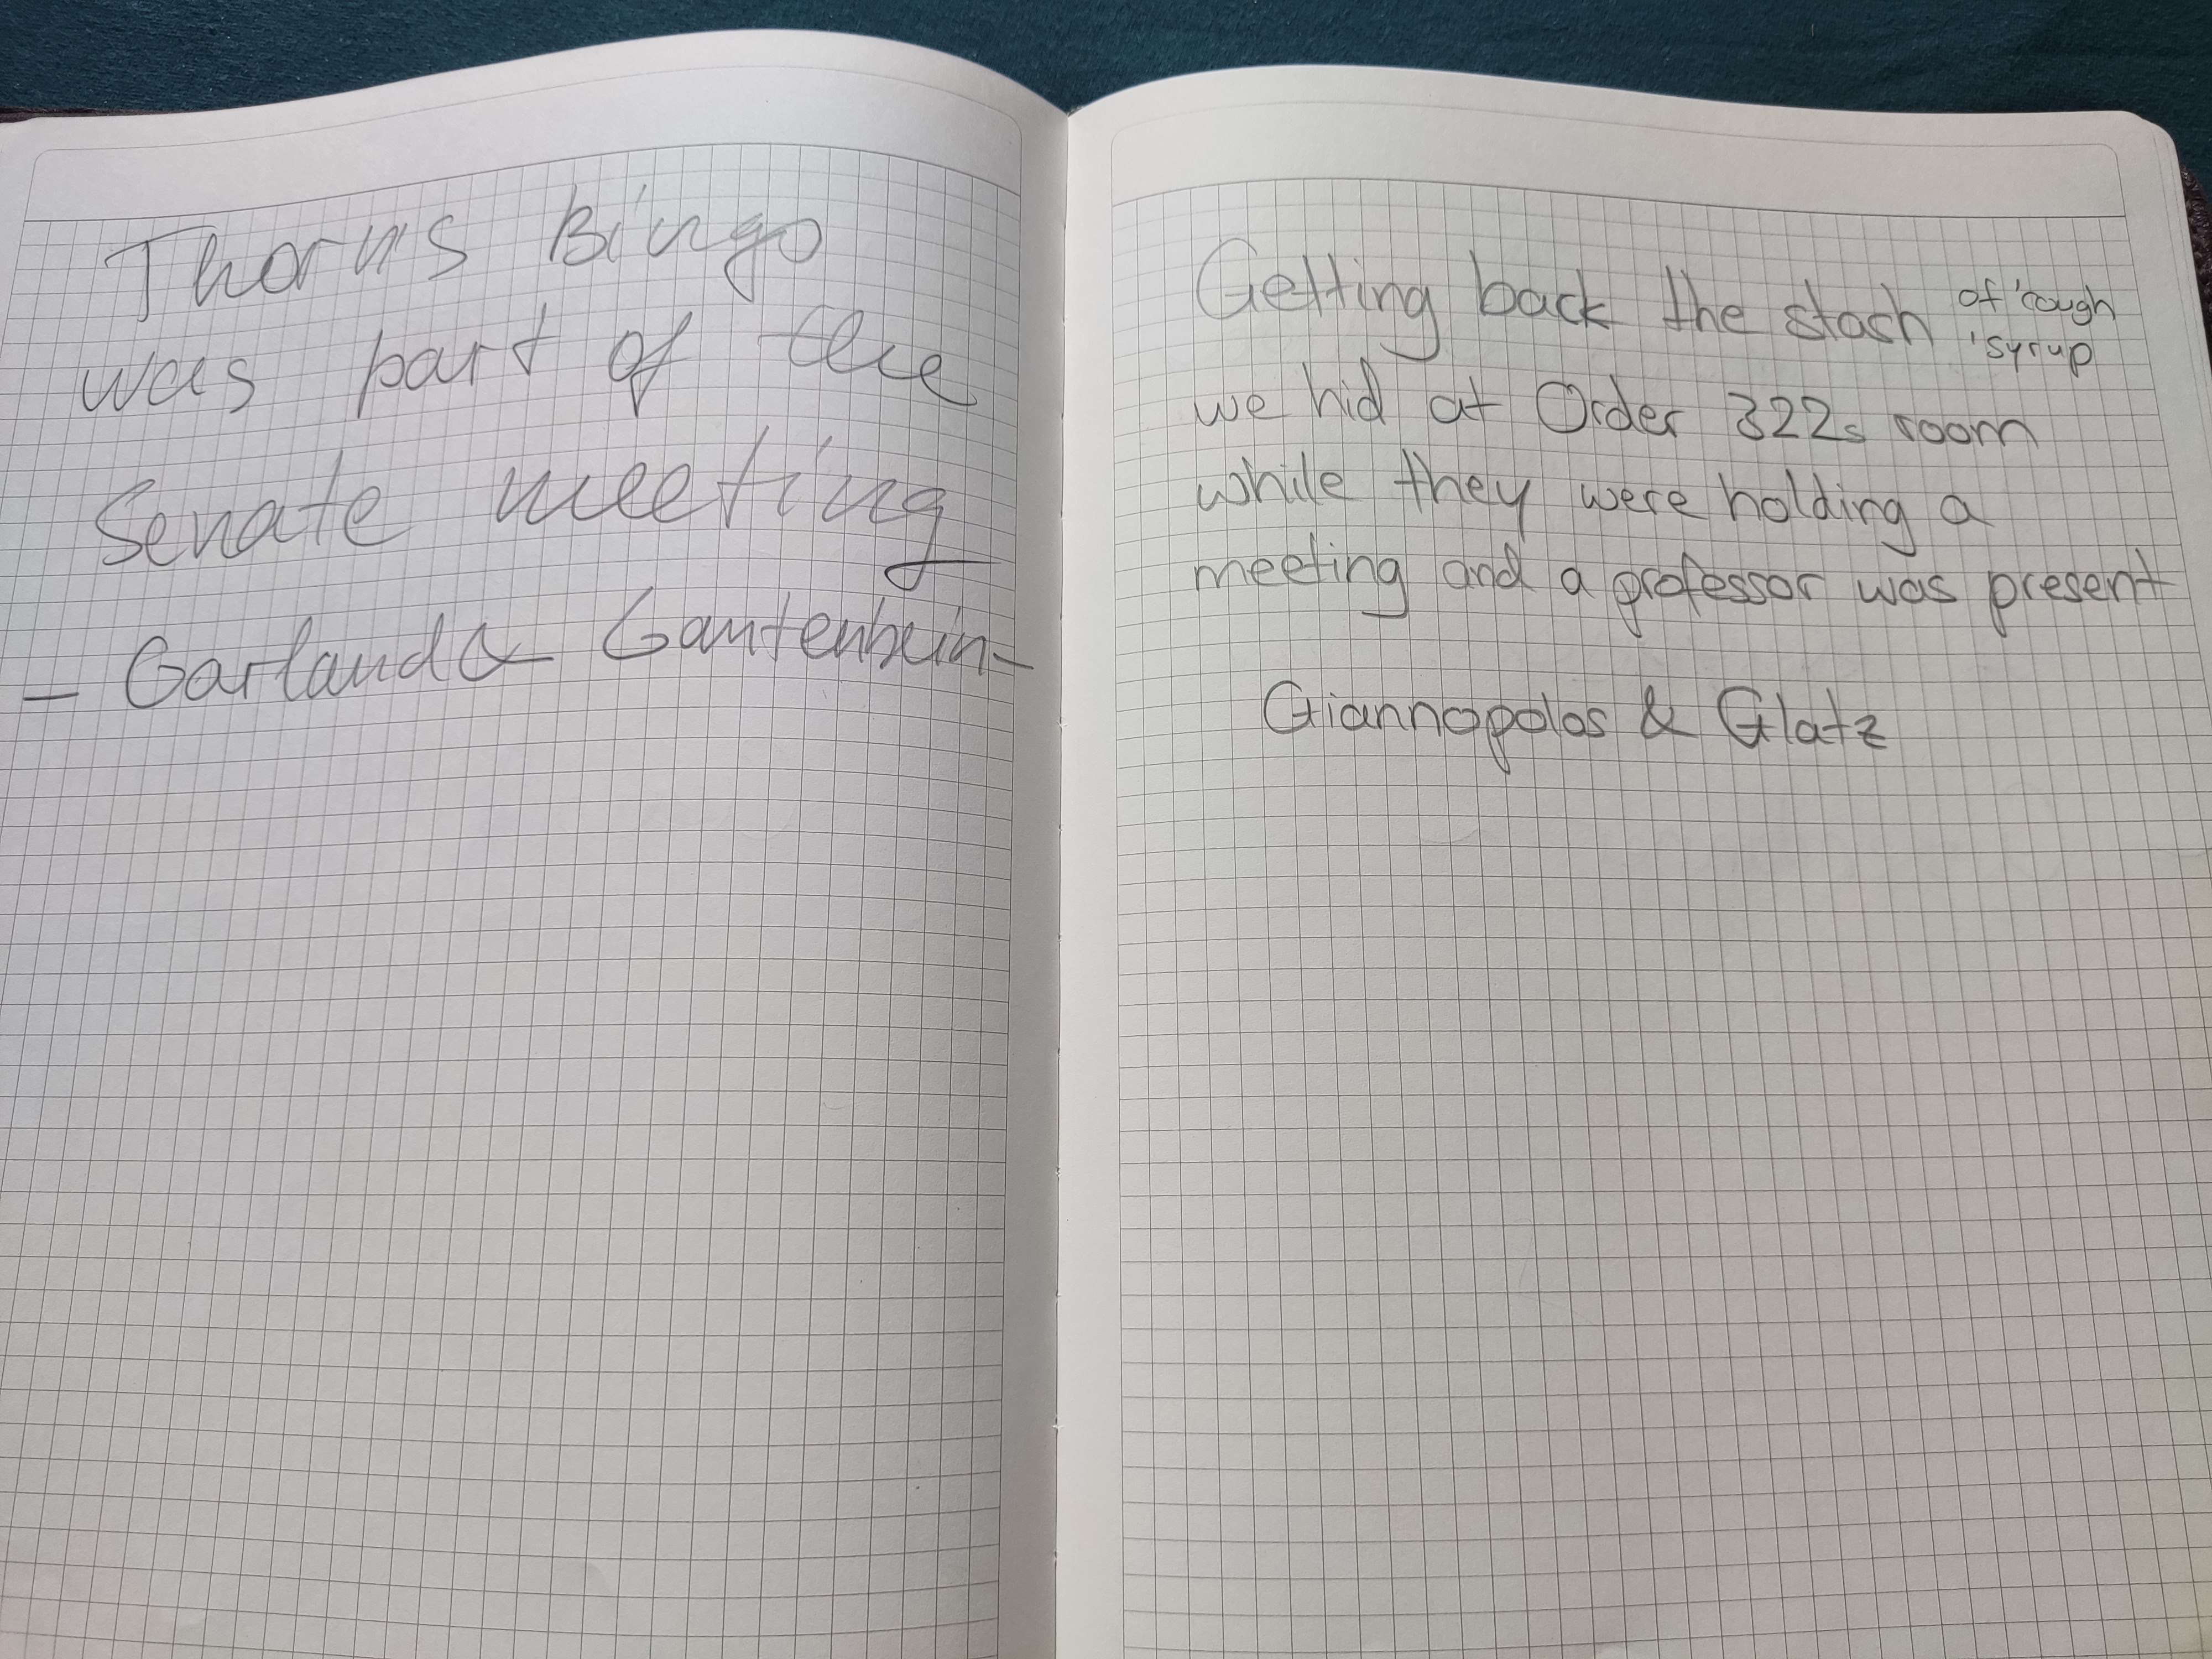 Thorns Bingo
was part of the
Senate meeting
- Garland & Gantenbein -
Getting back the stash of 'cough
'syrup
we hid at Order 322s room
while they were holding a
meeting and a professor was present
Giannopolos & Glatz